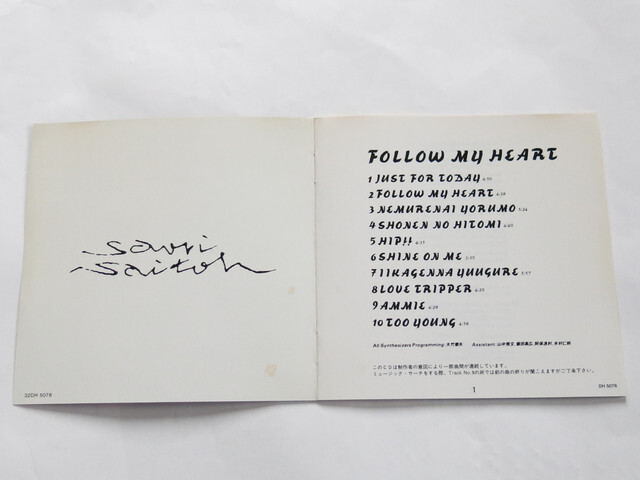 Saori
Saitoh
32DH 5078
FOLLOW MY HEART
1 JUST FOR TODAY
2 FOLLOW MY HEART
3 NEMURENAI YORUMO
4 SHONEN NO HITOMI
5 HIP!!
6 SHINE ON ME
7 IIKAGENNA YUUGURE
8 LOVE TRIPPER
9 AMMIE
10 TOO YOUNG
All Synthesizers Programming: Assistant:
このCDは制作者の意図により一部曲間が連続しています。
ミュージック・サーチをする際、Track No.9の終では前の曲の終りが聞こえますがご了承下さい。
1
DH 5078